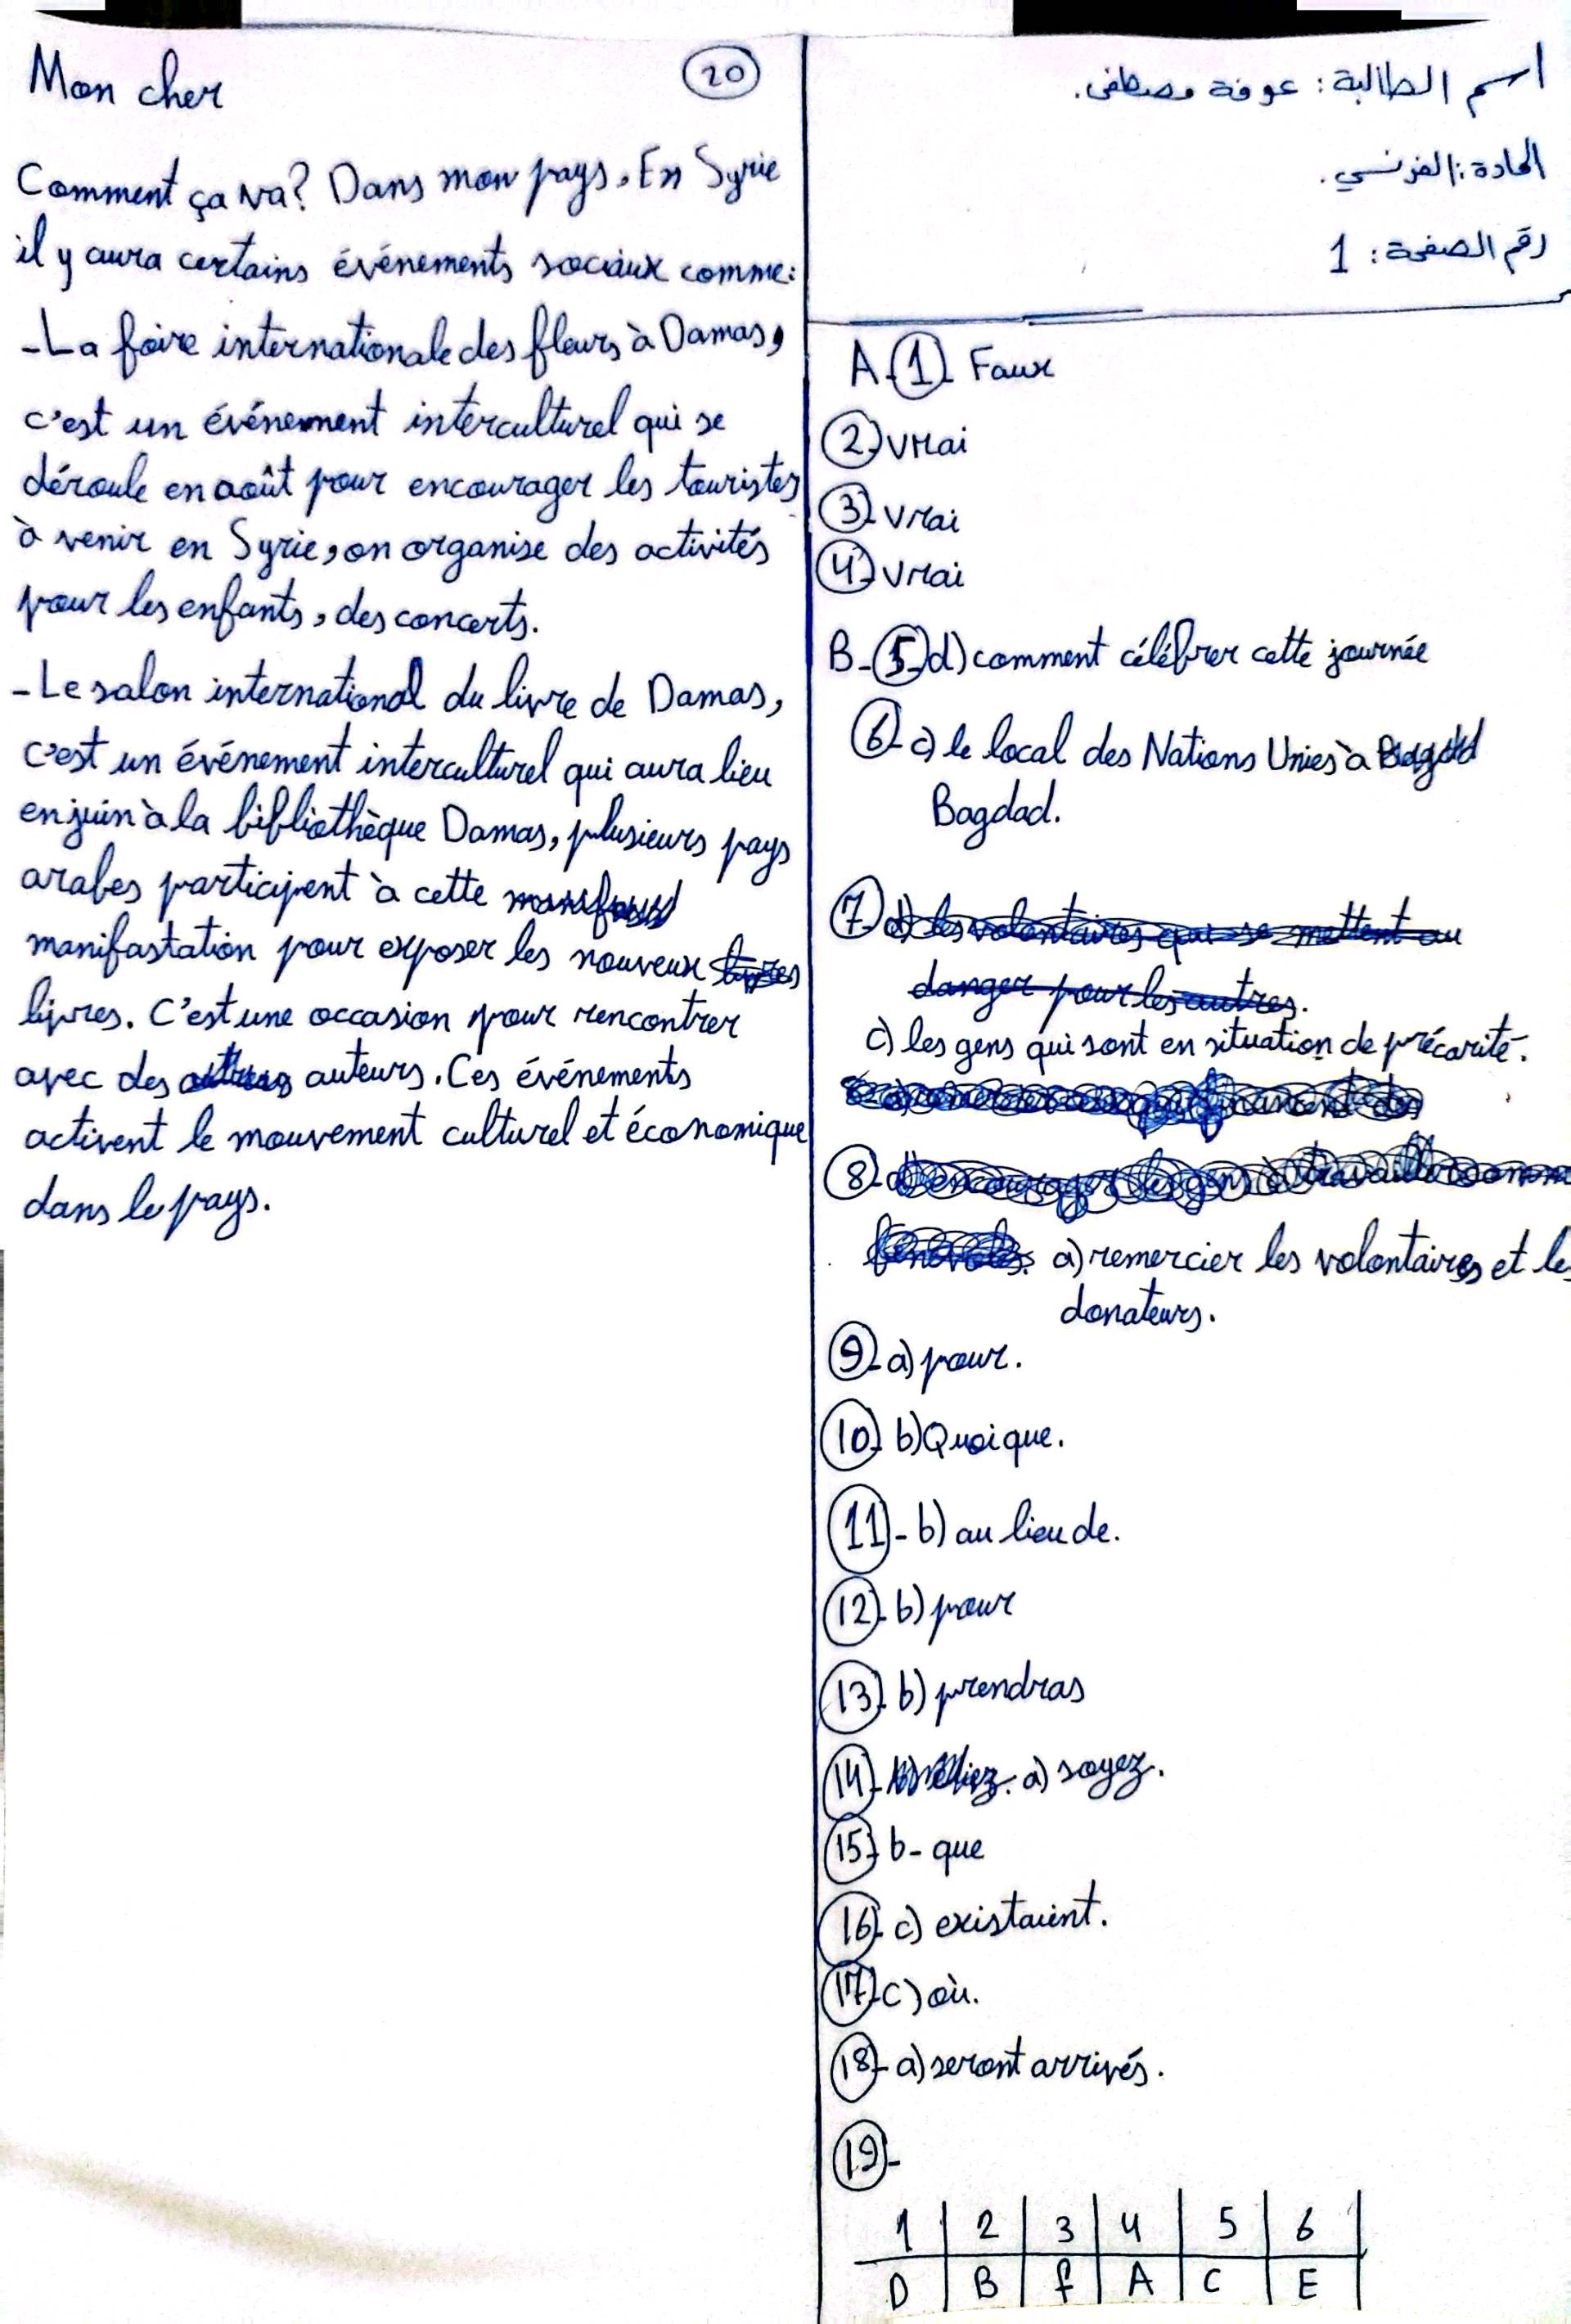 اسم الطالبة: عوفة مصطفى.
المادة: الفرنسي.
رقم الصفحة: 1
A-1- Faux
2- vrai
3- vrai
4- vrai
B-5- d) comment célébrer cette journée
6- c) le local des Nations Unies à
Bagdad.
7- d) les volontaires que se mettent au
danger pour les autres.
c) les gens qui sont en situation de précarité.
8-
a) remercier les volontaires et les
donateurs.
9- a) pour.
10- b) Quoique.
11- b) au lieu de.
12- b) pour
13- b) prendras
14- a) soyez.
15- b- que
16- c) existaient.
17- c) où.
18- a) seront arrivés.
19-
1 2 3 4 5 6
D B f A C E
20
Mon cher
Comment ça va? Dans mon pays, En Syrie
il y aura certains événements sociaux comme:
- La foire internationale des fleurs à Damas,
c'est un événement interculturel qui se
déroule en août pour encourager les touristes
à venir en Syrie, on organise des activités
pour les enfants, des concerts.
- Le salon international du livre de Damas,
c'est un événement interculturel qui aura lieu
en juin à la bibliothèque Damas, plusieurs pays
arabes participent à cette
manifastation pour exposer les nouveux livres
livres. C'est une occasion pour rencontrer
avec des auteurs. Ces événements
activent le mouvement culturel et économique
dans le pays.